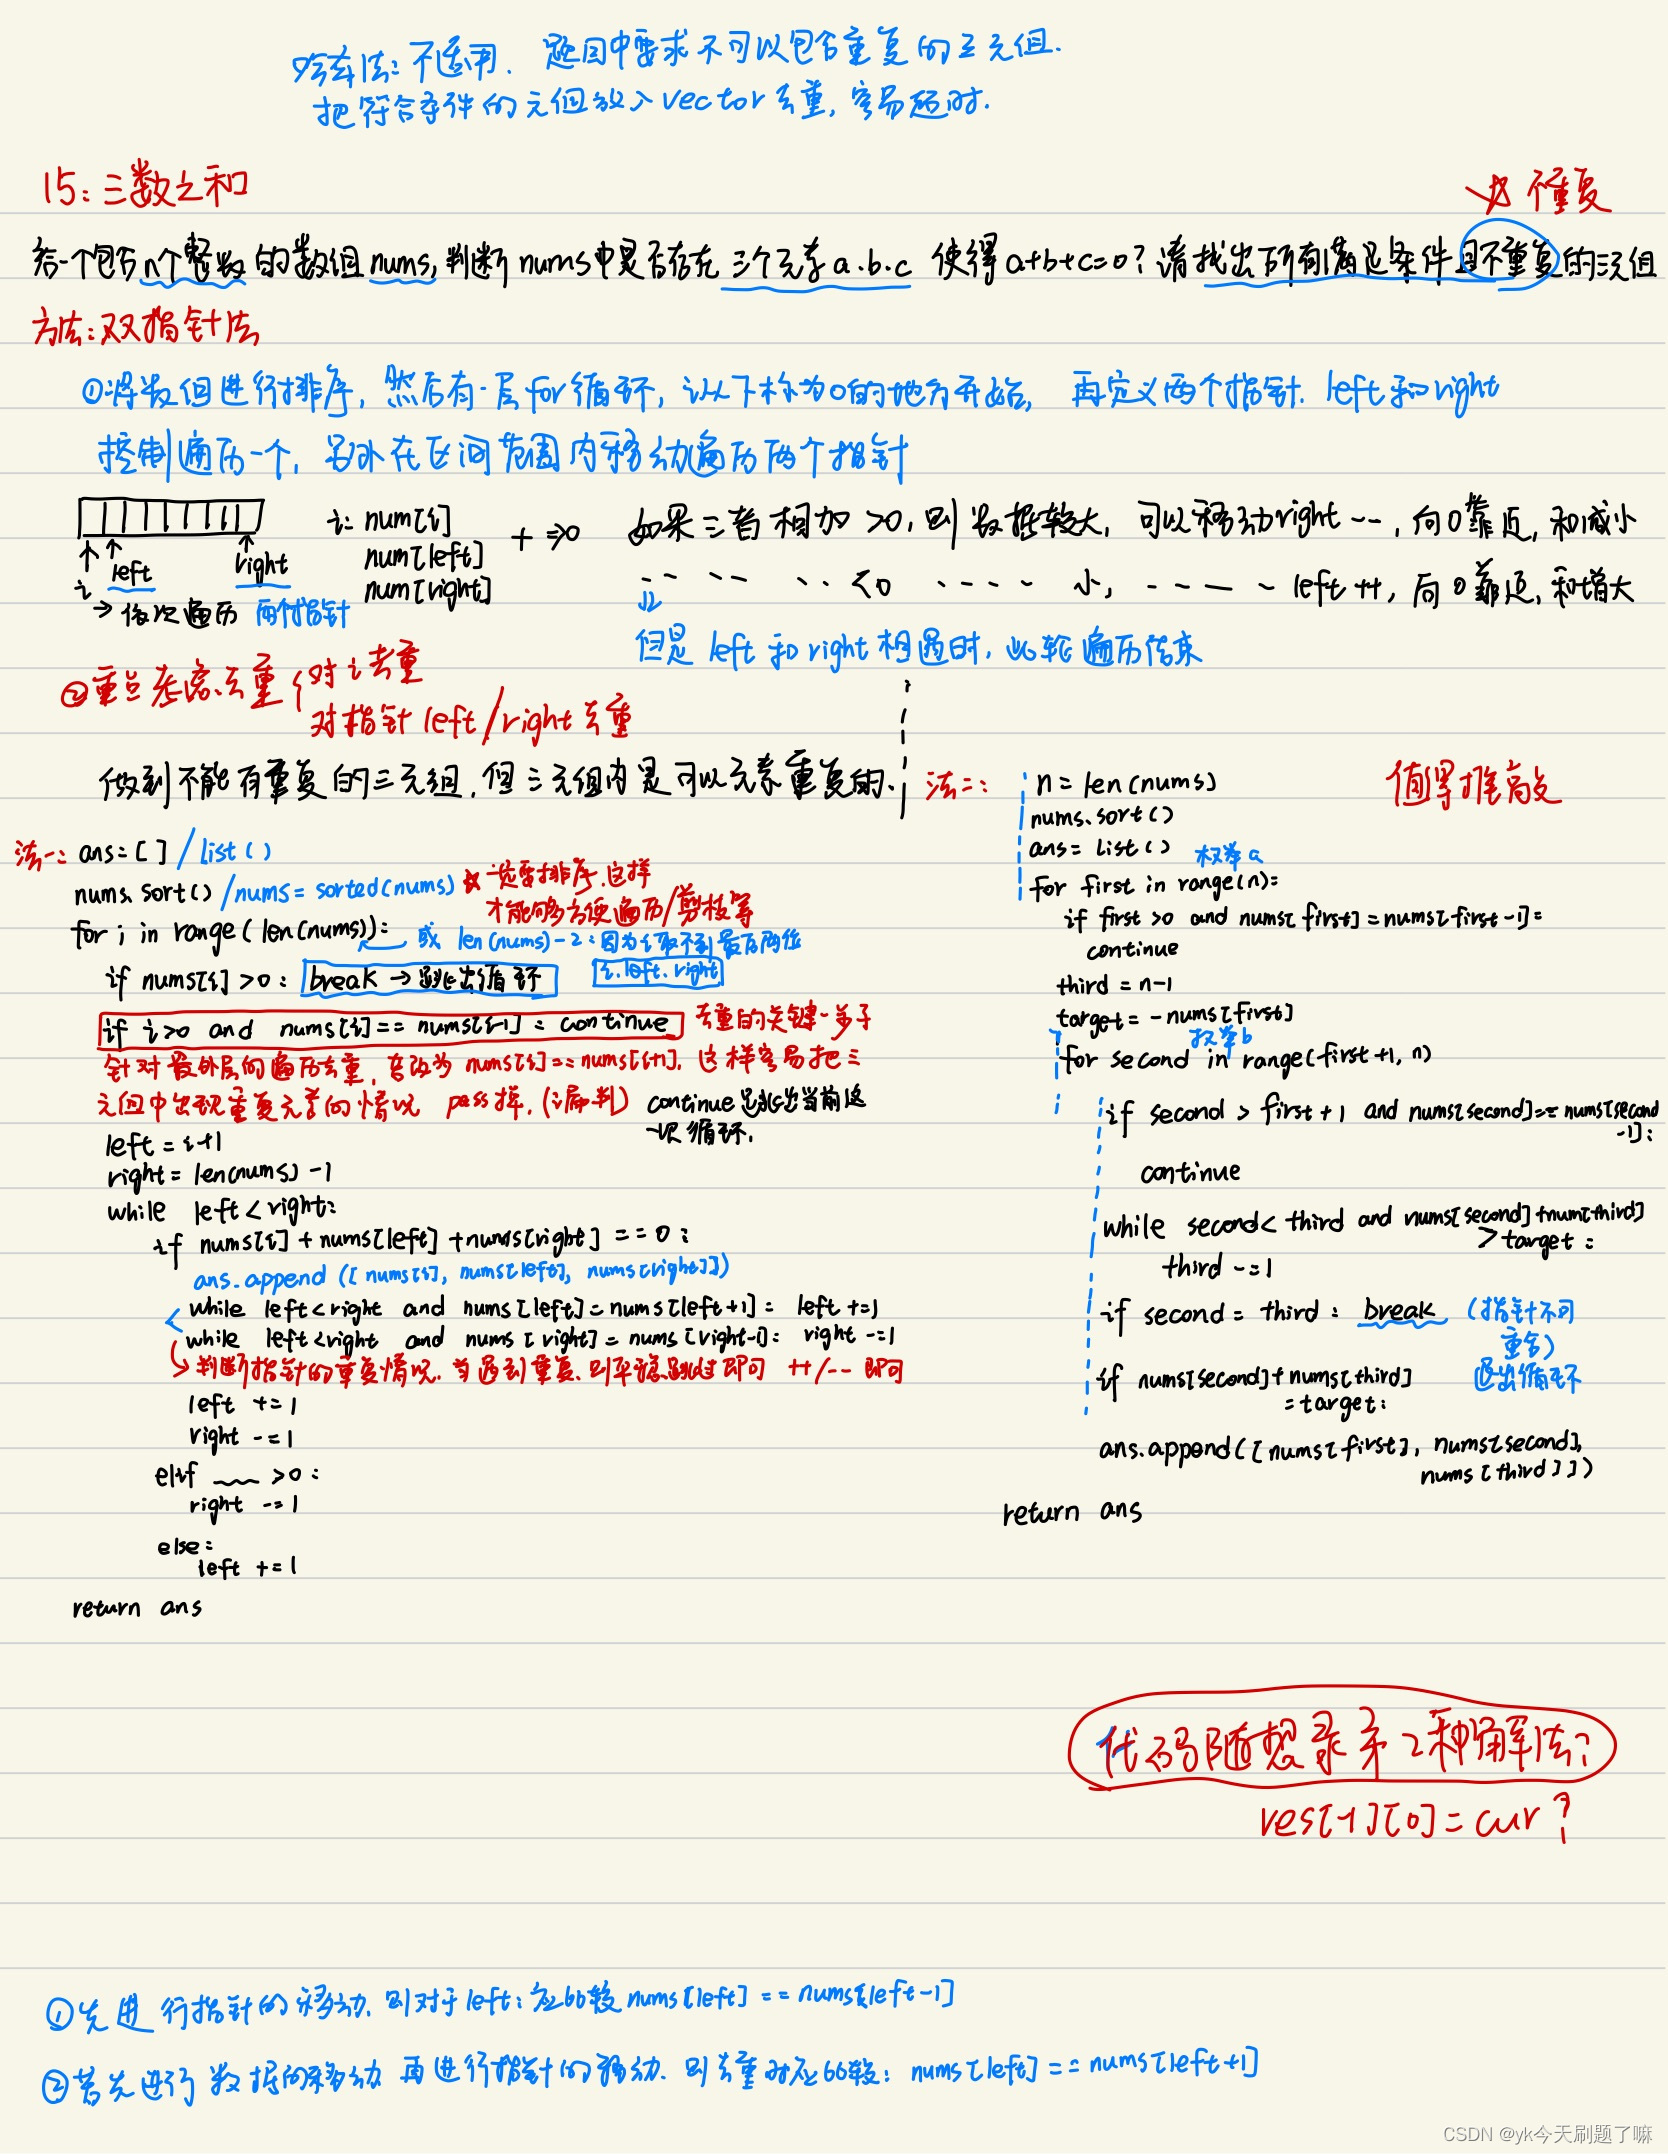 哈希法: 不适用. 题目中要求不可以包含重复的三元组.
把符合条件的元组放入vector去重, 容易超时.
15: 三数之和
不重复
给一个包含n个整数的数组nums, 判断nums中是否存在三个元素a.b.c 使得a+b+c=0? 请找出所有满足条件且不重复的三元组
方法: 双指针法
①将数组进行排序, 然后有一层for循环, 以下标为0的地方开始, 再定义两个指针. left和right
控制遍历一个, 另外在区间范围内移动遍历两个指针
i: num[i]
num[left]
num[right]
+ ⇒0
如果三者相加 >0, 则数据较大, 可以移动right --, 向0靠近, 和减小
<0 小, left ++, 向0靠近, 和增大
i left right
→ 依次遍历 两个指针
但是 left 和 right 相遇时, 此轮遍历结束
②重点考虑去重 { 对i去重
对指针left/right去重
做到不能有重复的三元组, 但三元组内是可以元素重复的.
法一: ans=[] /list()
nums.sort() /nums=sorted(nums) 一定要排序, 这样
才能够方便遍历/剪枝等
for i in range(len(nums)):
或 len(nums)-2: 因为i取不到最后两位
i.left.right
if nums[i] >0: break → 跳出循环
if i>0 and nums[i]== nums[i-1]: continue 去重的关键一步子
针对最外层的遍历去重, 若改为 nums[i]==nums[i+1], 这样容易把三
元组中出现重复元素的情况 pass掉, (漏判)
continue是跳出当前这
一次循环.
left = i+1
right = len(nums) -1
while left<right:
if nums[i] + nums[left] +nums[right] ==0:
ans.append ([nums[i], nums[left], nums[right]])
while left<right and nums[left]=nums[left+1]: left +=1
while left<right and nums[right]=nums[right-1]: right -=1
判断指针的重复情况, 当遇到重复, 则平稳跳过即可 ++/-- 即可
left +=1
right -=1
elif >0:
right -=1
else:
left +=1
return ans
法二: 值得推敲
n = len(nums)
nums.sort()
ans= list() 枚举a
for first in range(n):
if first >0 and nums[first]=nums[first-1]:
continue
third = n-1
target = -nums[first]
枚举b
for second in range(first+1, n)
if second > first+1 and nums[second]==nums[second
-1]:
continue
while second< third and nums[second]+num[third]
> target:
third -=1
if second = third: break (指针不可
重合)
退出循环
if nums[second]+nums[third]
=target:
ans.append([nums[first], nums[second],
nums[third]])
return ans
代码随想录第2种解法?
res[-1][0]=cur?
①先进行指针的移动, 则对于left: 应比较 nums[left] == nums[left-1]
②若先进行数据的移动 再进行指针的移动. 则去重时应比较: nums[left] == nums[left+1]
CSDN @yk今天刷题了嘛